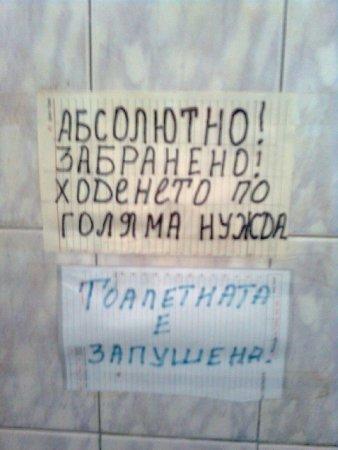 АБСОЛЮТНО!
ЗАБРАНЕНО!
ХОДЕНЕТО ПО
ГОЛЯМА НУЖДА
ТОАЛЕТНАТА
Е
ЗАПУШЕНА!